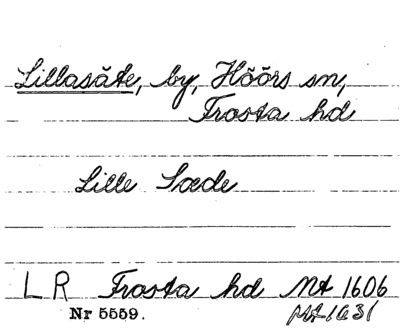 Lillasäte, by, Höörs sn,
Frosta hd
Lille Sæde
LR Frosta hd Mt 1606
Nr 5559. Mt 1631